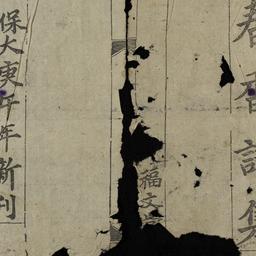 春香詩集
福文
保大庚午年新刊